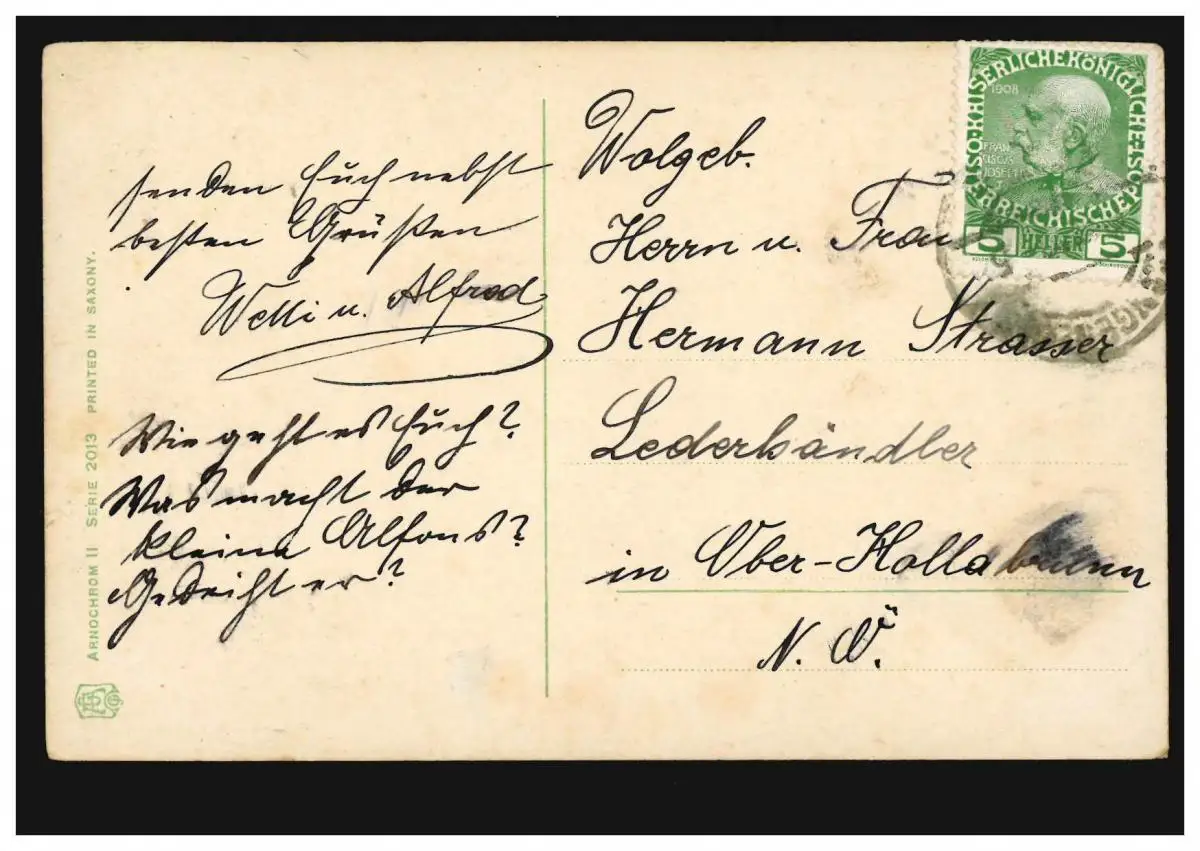 senden Euch nebst
besten Grüßen
Welli u. Alfred
Wie geht es Euch?
Was macht der
kleine Alfons?
Gedeiht er?
Wolgeb.
Herrn u. Frau
Hermann Strasser
Lederhändler
in Ober-Hollabrunn
N. Ö.
KAISERLICHE KÖNIGLICHE ÖSTERREICHISCHE POST
1908
FRAN
CISCVS
JOSEPH
I
5 HELLER 5
ARNOCHROM II SERIE 2013 PRINTED IN SAXONY.